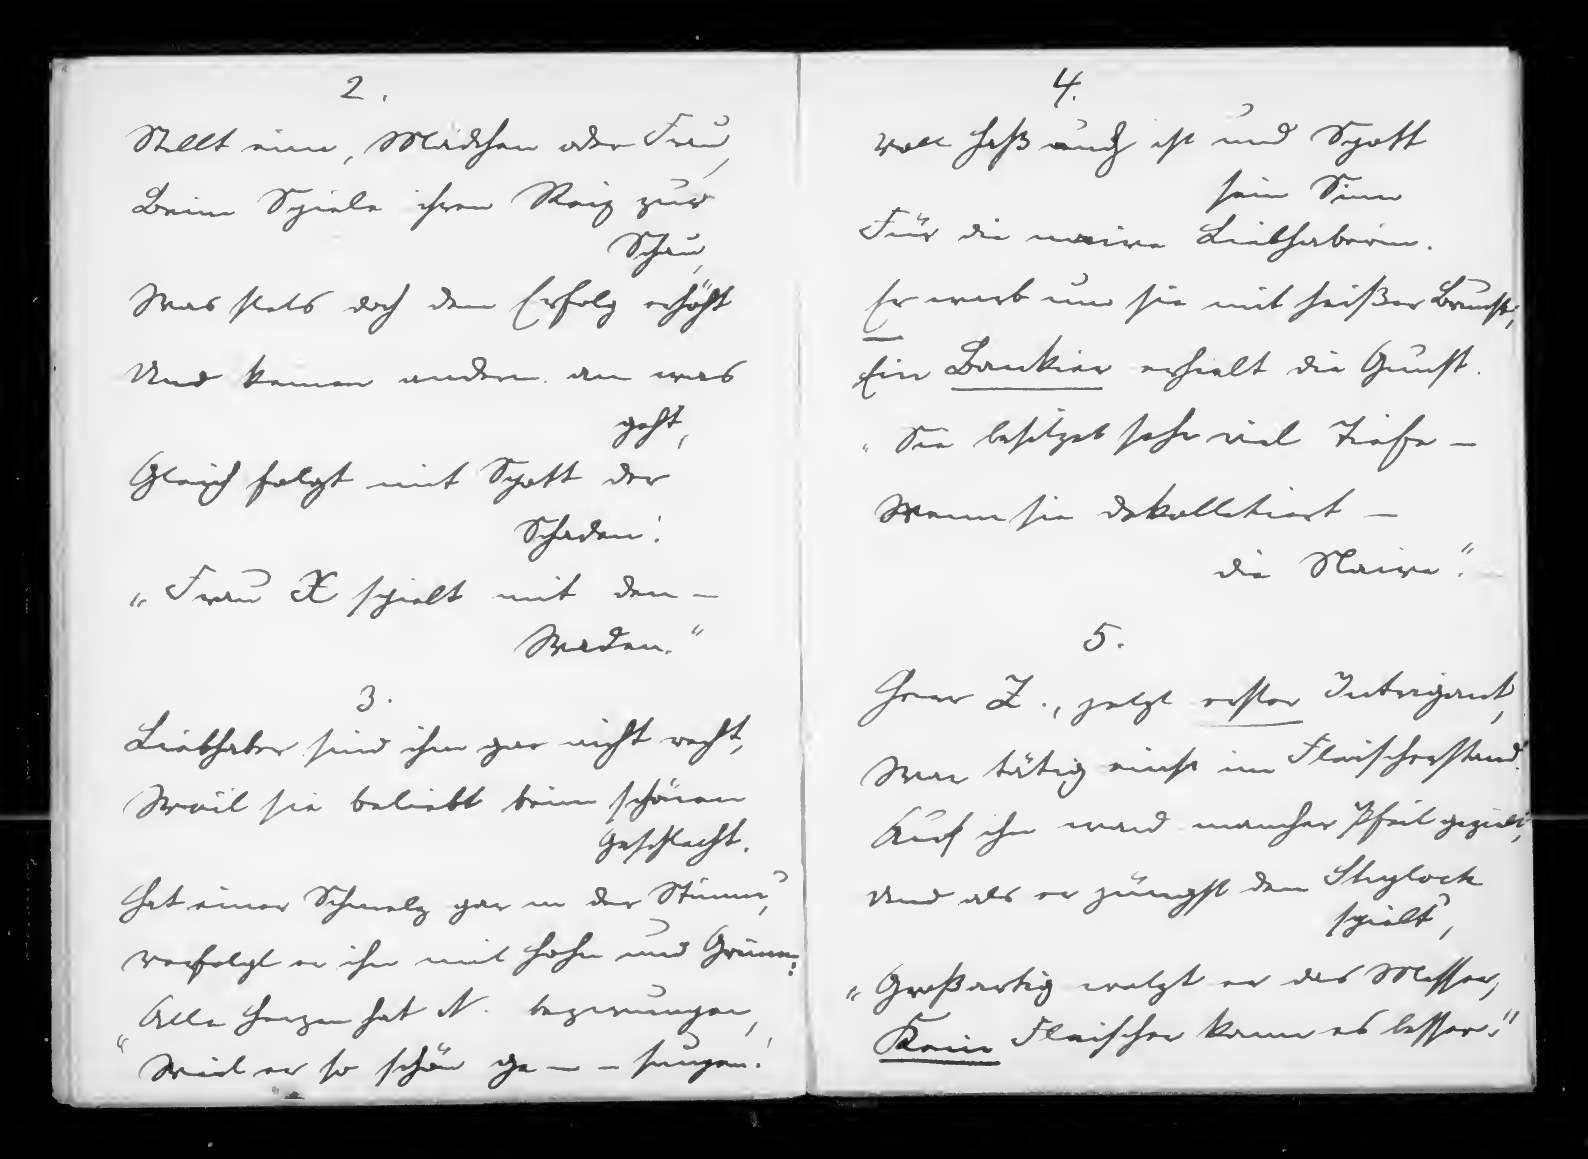 2.
Stellt eine, Mädchen oder Frau,
Beim Spiele ihren Reiz zur
Schau,
Was stets doch den Erfolg erhöht
Und keinen andern an was
geht,
Gleich folgt mit Spott der
Schaden:
„Frau X spielt mit den –
Waden."
3.
Liebhaber sind ihm gar nicht recht,
Weil sie beliebt beim schönen
Geschlecht.
Hat einer Schmelz gar in der Stimm',
verfolgt er ihn mit Hohn und Grimm:
„Alle Herzen hat N. bezwungen,
Weil er so schön ge – – sungen!
4.
Voll Haß auch ist und Spott
sein Sinn
Für die naive Liebhaberin.
Er warb um sie mit heißer Brunst;
Ein Bankier erhielt die Gunst.
„Sie besitzet sehr viel Tiefe –
Wenn sie dekolletiert –
die Naive".
5.
Herr Z., jetzt erster Intrigant,
War tätig einst im Fleischerstand.
Auf ihn ward mancher Pfeil gezielt,
Und als er jüngst den Shylock
spielt',
„Großartig wetzt er das Messer,
Kein Fleischer kann es besser."